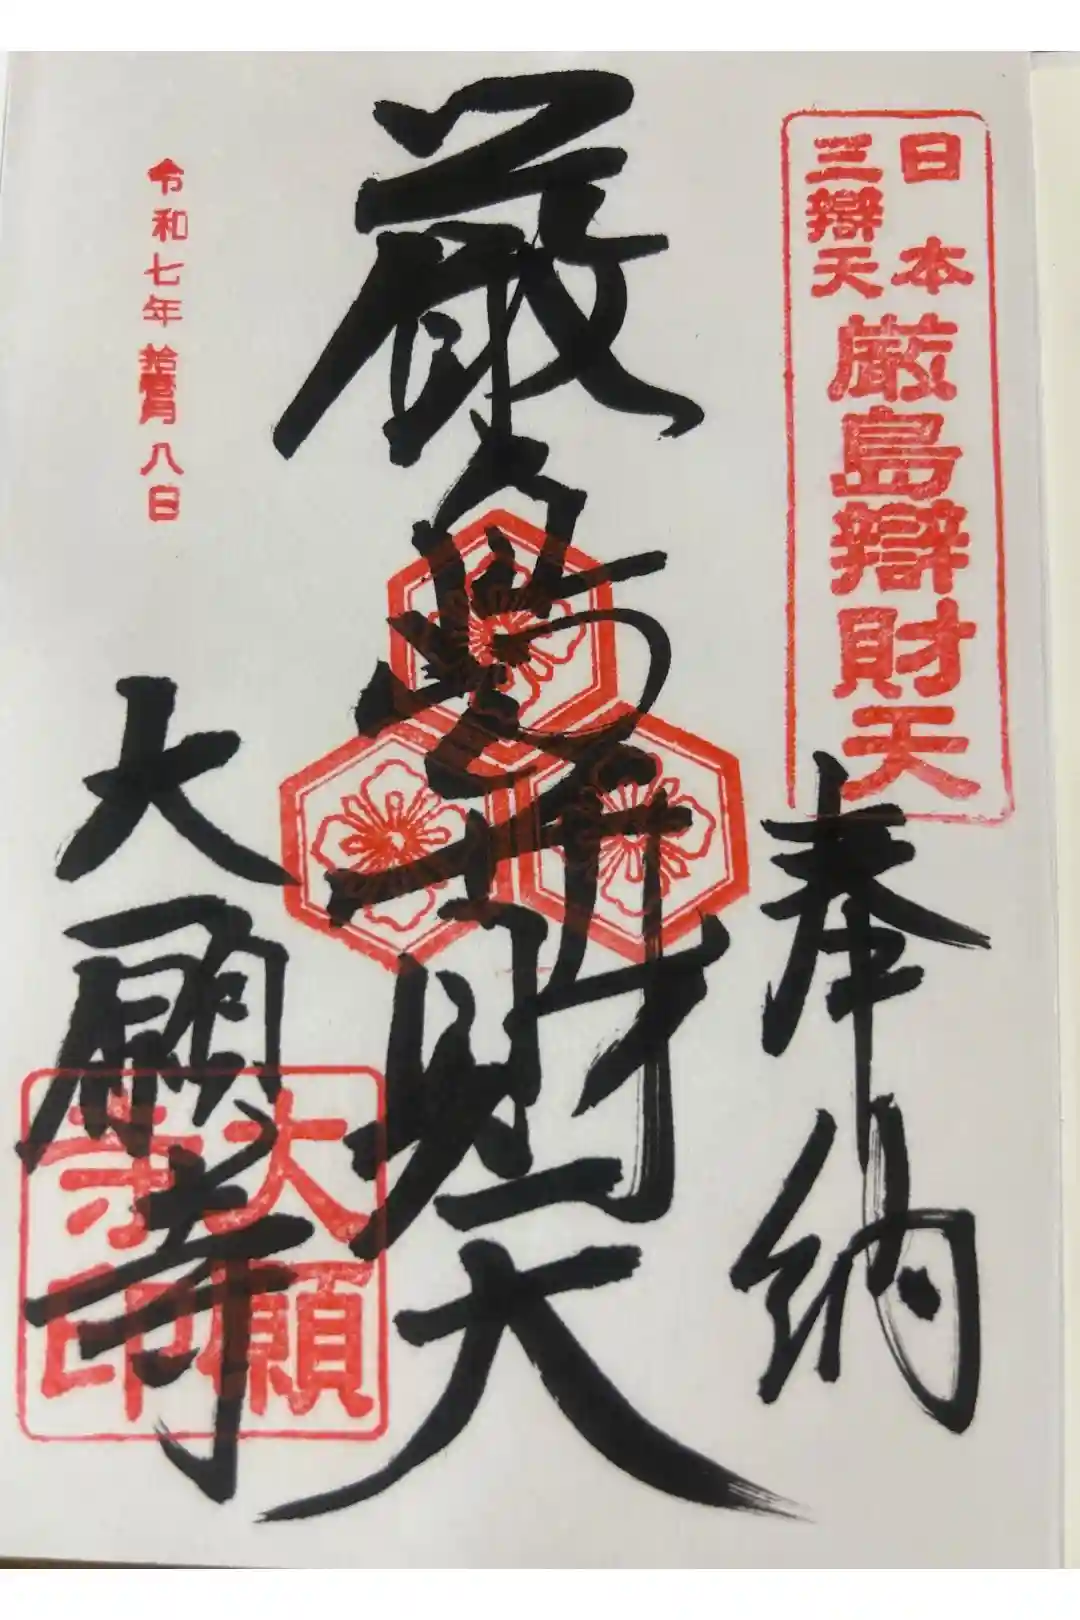 日本
三辯天
厳島辯財天
奉納
厳島弁財天
令和七年 八日
大願寺
大願
寺印